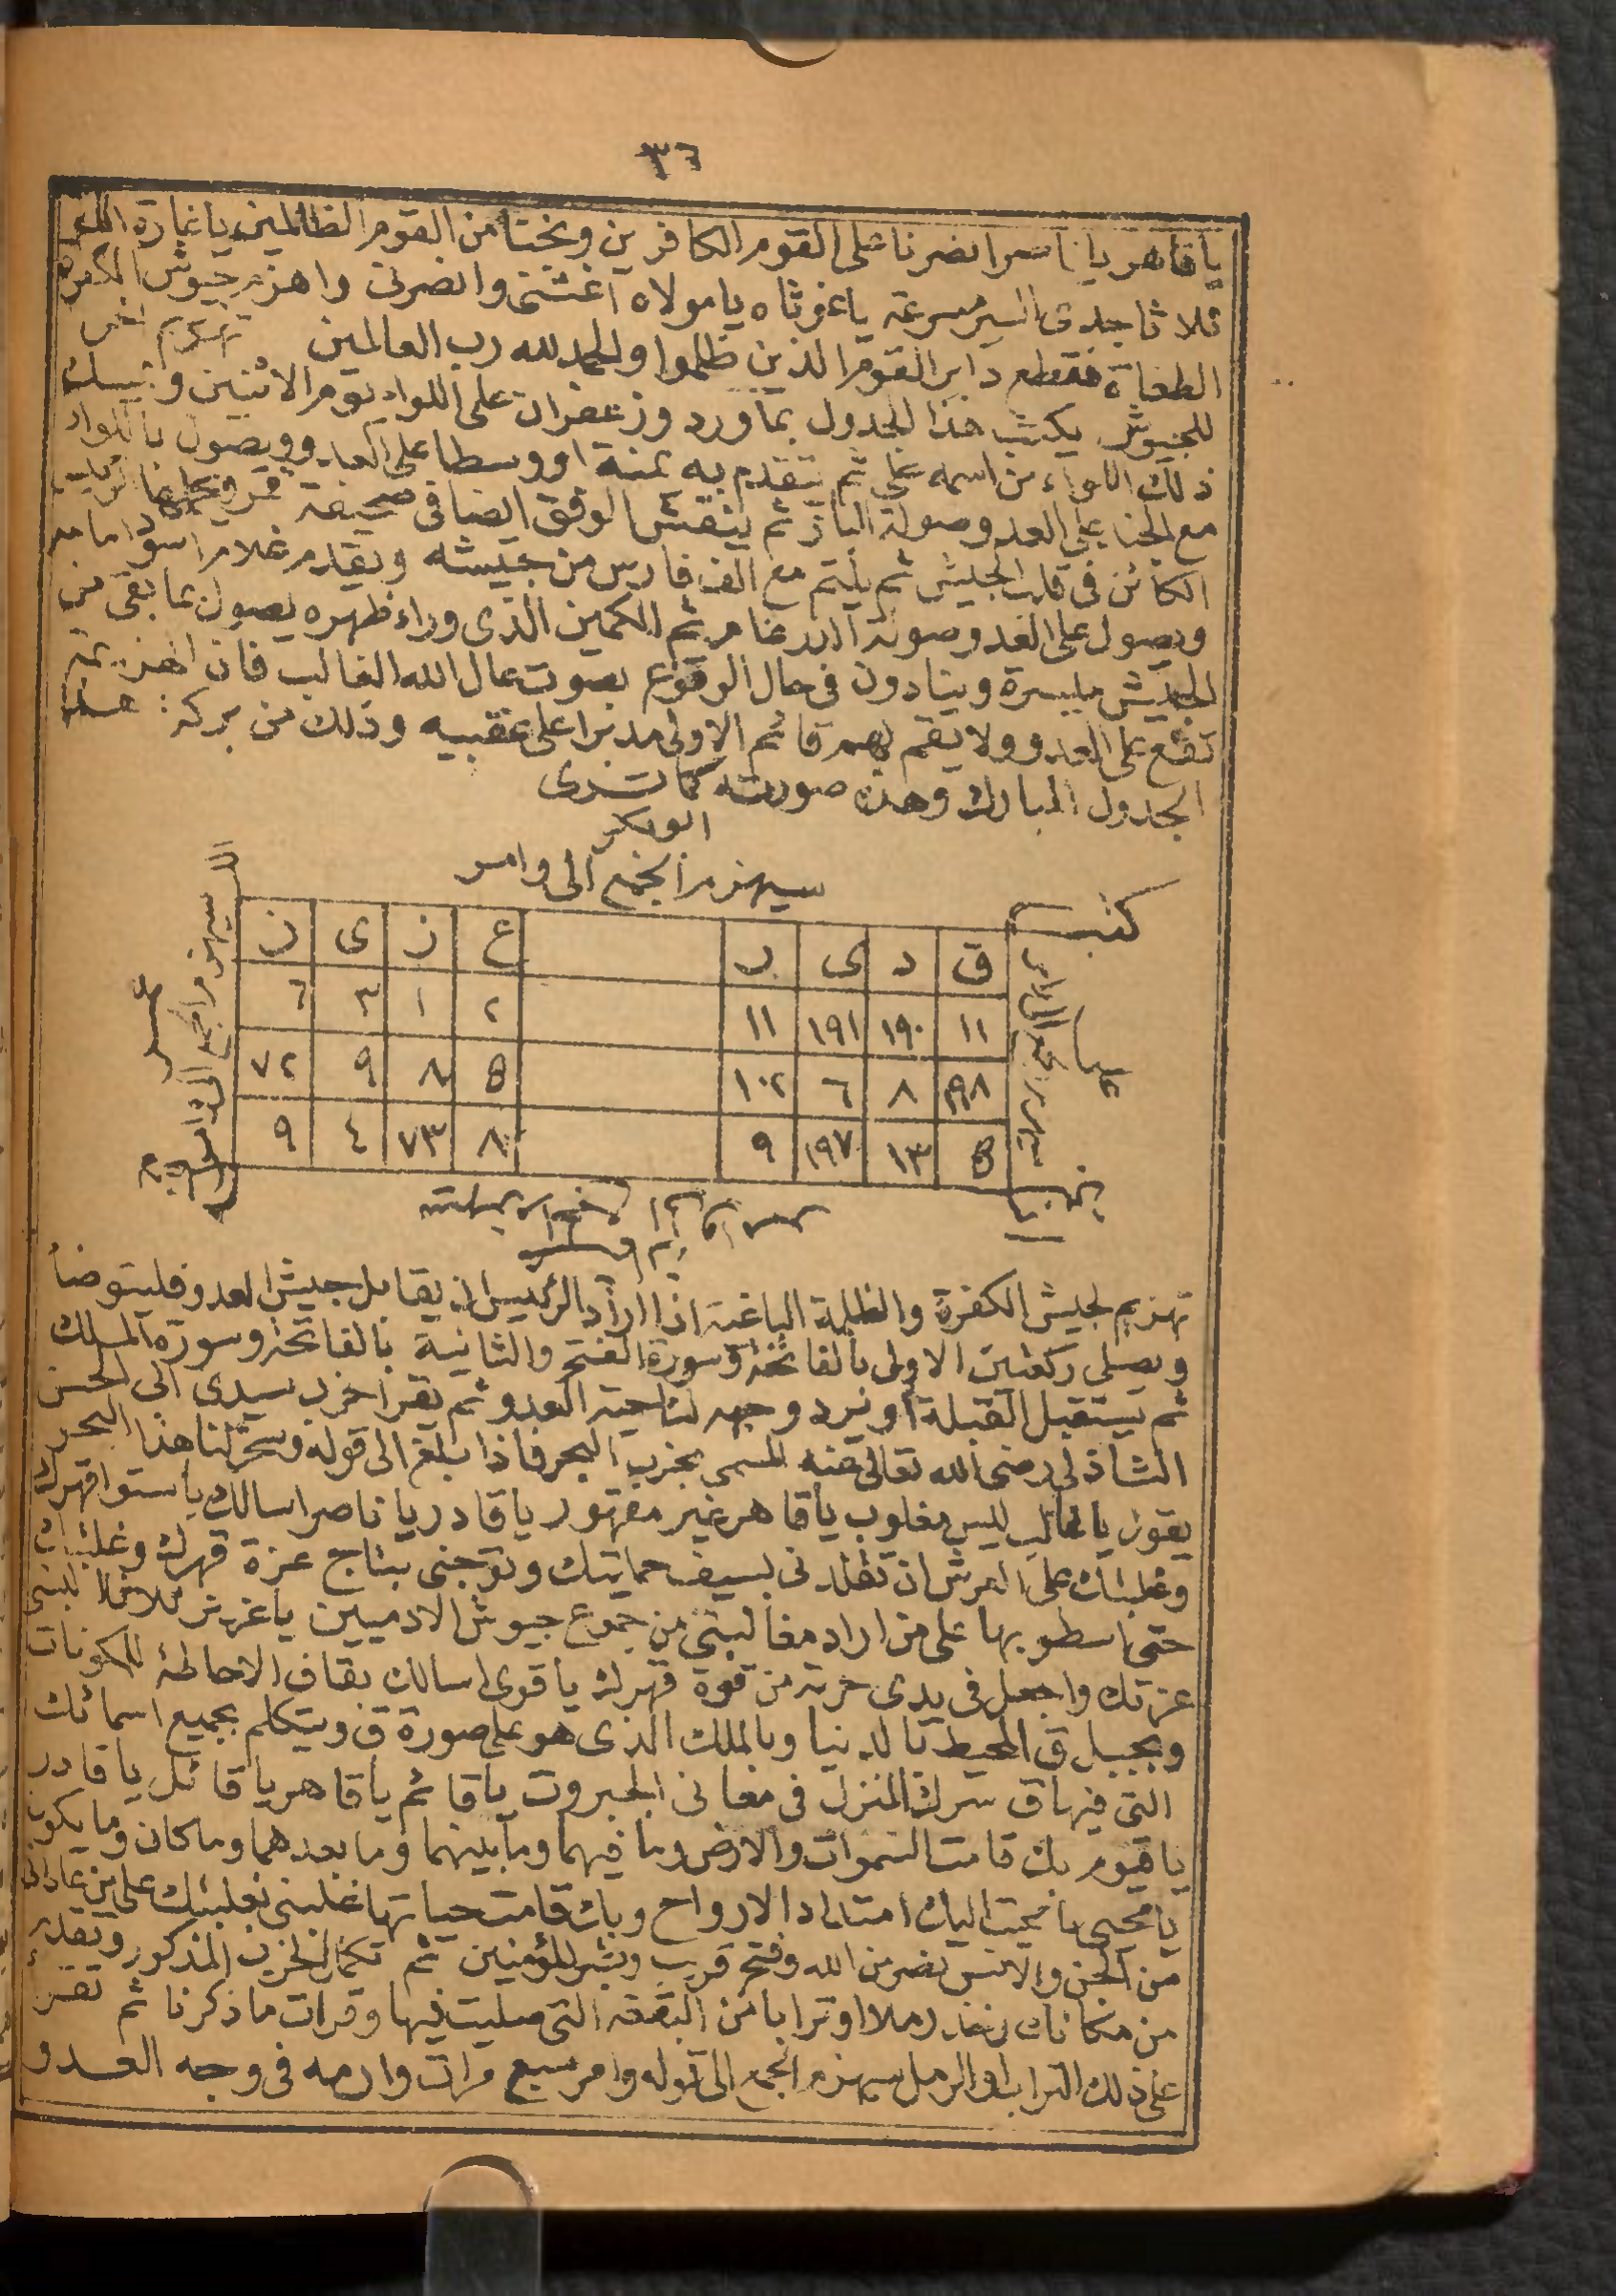 ٣٦
يا قاهر يا ناصر انصرنا على القوم الكافرين ونجنا من القوم الظالمين يا غارة الله
ثلاثا جدى السير مسرعة يا غوثاه يا مولاه اغثنى وانصرنى واهزم جيوش الكفرة
الطغاة فقطع دابر القوم الذين ظلموا والحمد لله رب العالمين
للجيوش يكتب هذا الجدول بماورد وزعفران على اللواء يوم الاثنين ويمسك
ذلك اللواء من اسمه على ثم يتقدم به يمنة او وسطا على العدو ويصول باللواء
مع الجناب على العدو صولة الباز ثم ينقش الوفق ايضا فى صحيفة
الكائن فى قلب الجيش ثم يلتم مع الف فارس من جيشه ويقدم غلاما اسود امامه
ويصول على العدو صولة الدرغام ثم الكمين الذى وراء ظهره يصول بما بقى من
الجيش ميسرة وينادون فى حال الوقوع بصوت عال الله الغالب فان الهزيمة
تقع على العدو ولا يقم لهم قائم الاولى مدبرا على عقبيه وذلك من بركة هذا
الجدول المبارك وهذه صورته كما ترى
ابو بكر
سيهزم الجمع الى وامر
ق د ى ر ع ز ى ز
١١ ١٩٠ ١٩١ ١١ ٢ ١ ٣ ٦
١٩٨ ٨ ٦ ١٠٢ ٥ ٨ ٩ ٧٢
٥ ١٣ ١٩٧ ٩ ٨ ٧٣ ٤ ٩
تهزيم لجيش الكفرة والظلمة الباغية اذا اراد الرئيس ان يقابل جيش العدو فليتوضأ
ويصلى ركعتين الاولى بالفاتحة وسورة الفتح والثانية بالفاتحة وسورة الملك
ثم يستقبل القبلة او يرد وجهه لناحية العدو ثم يقرأ حزب سيدى ابى الحسن
الشاذلى رضى الله تعالى عنه المسمى بحزب البحر فاذا بلغ الى قوله وسخر لنا هذا البحر
يقول يا غالب ليس مغلوب يا قاهر غير مقهور يا قادر يا ناصر اسالك باستوا قهرك
وغلبتك على العرش ان تقلدنى بسيف حمايتك وتوجنى بتاج عزة قهرك وغلبتك
حتى اسطو بها على من اراد مغالبتى من جموع جيوش الادميين يا عزيز ثلاثا البسنى
عزتك واجعل فى يدى حربة من قوة قهرك يا قوى اسالك بقاف الاحاطة للمكونات
وبجبل ق المحيط بالدنيا وبالملك الذى هو على صورة ق ويتكلم بجميع اسمائك
التى فيها ق سرك المنزل فى معانى الجبروت يا قائم يا قاهر يا قائل يا قادر
يا قيوم بك قامت السموات والارض وما فيهما وما بينهما وما بعدهما وما كان وما يكون
يا محيى يا مميت اليك امتداد الارواح وبك قامت حياتها غلبنى بغلبتك على من عادانى
من الجن والانس نصر من الله وفتح قريب وبشر المؤمنين ثم تكمل الحزب المذكور وبعده
من مكانك تخذ رملا او ترابا من البقعة التى صليت فيها وقرات ما ذكرنا ثم تقرأ
على ذلك التراب او الرمل سيهزم الجمع الى قوله وامر سبع مرات وارمه فى وجه العدو